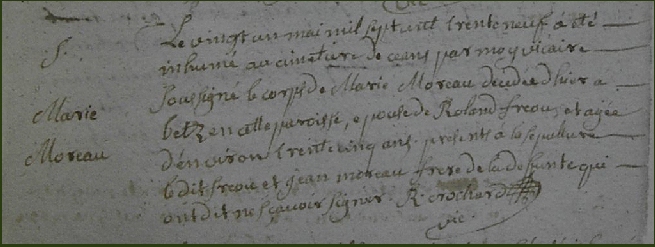 S.
Marie
Moreau
Le vingt un mai mil sept cent trente neuf a été
inhumé au cimetiere de ceans par moy vicaire
soussigné le corps de Marie Moreau decedée d'hier a
betz en cette paroisse, epouse de Roland freou, et agée
d'environ trente cinq ans. presents a la sepulture
le dit freou et jean moreau frere de la defunte qui
ont dit ne sçavoir signer. R. crochard
vic.